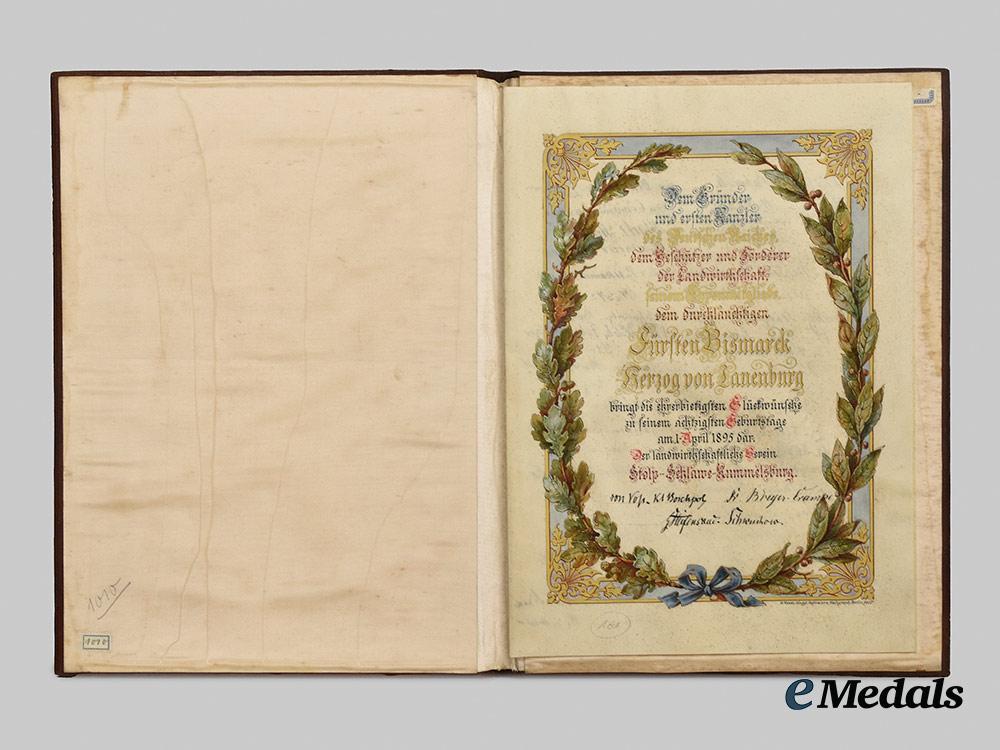 1010
1010
Dem Gründer
und ersten Kanzler
des Deutschen Reiches
dem Beschützer und Förderer
der Landwirthschaft,
seinem Ehrenmitgliede,
dem durchlauchtigen
Fürsten Bismarck
Herzog von Lauenburg
bringt die ehrerbietigsten Glückwünsche
zu seinem achtzigsten Geburtstage
am 1. April 1895 dar.
Der landwirthschaftliche Verein
Stolp-Schlawe-Rummelsburg.
von
eMedals